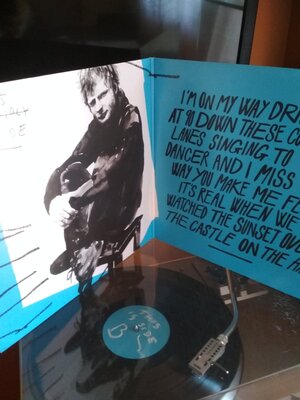 I'M ON MY WAY DRI
AT 90 DOWN THESE CO
LANES SINGING TO
DANCER AND I MISS
WAY YOU MAKE ME FE
IT'S REAL WHEN WE
WATCHED THE SUNSET OV
THE CASTLE ON THE H
THIS
IS SIDE
B